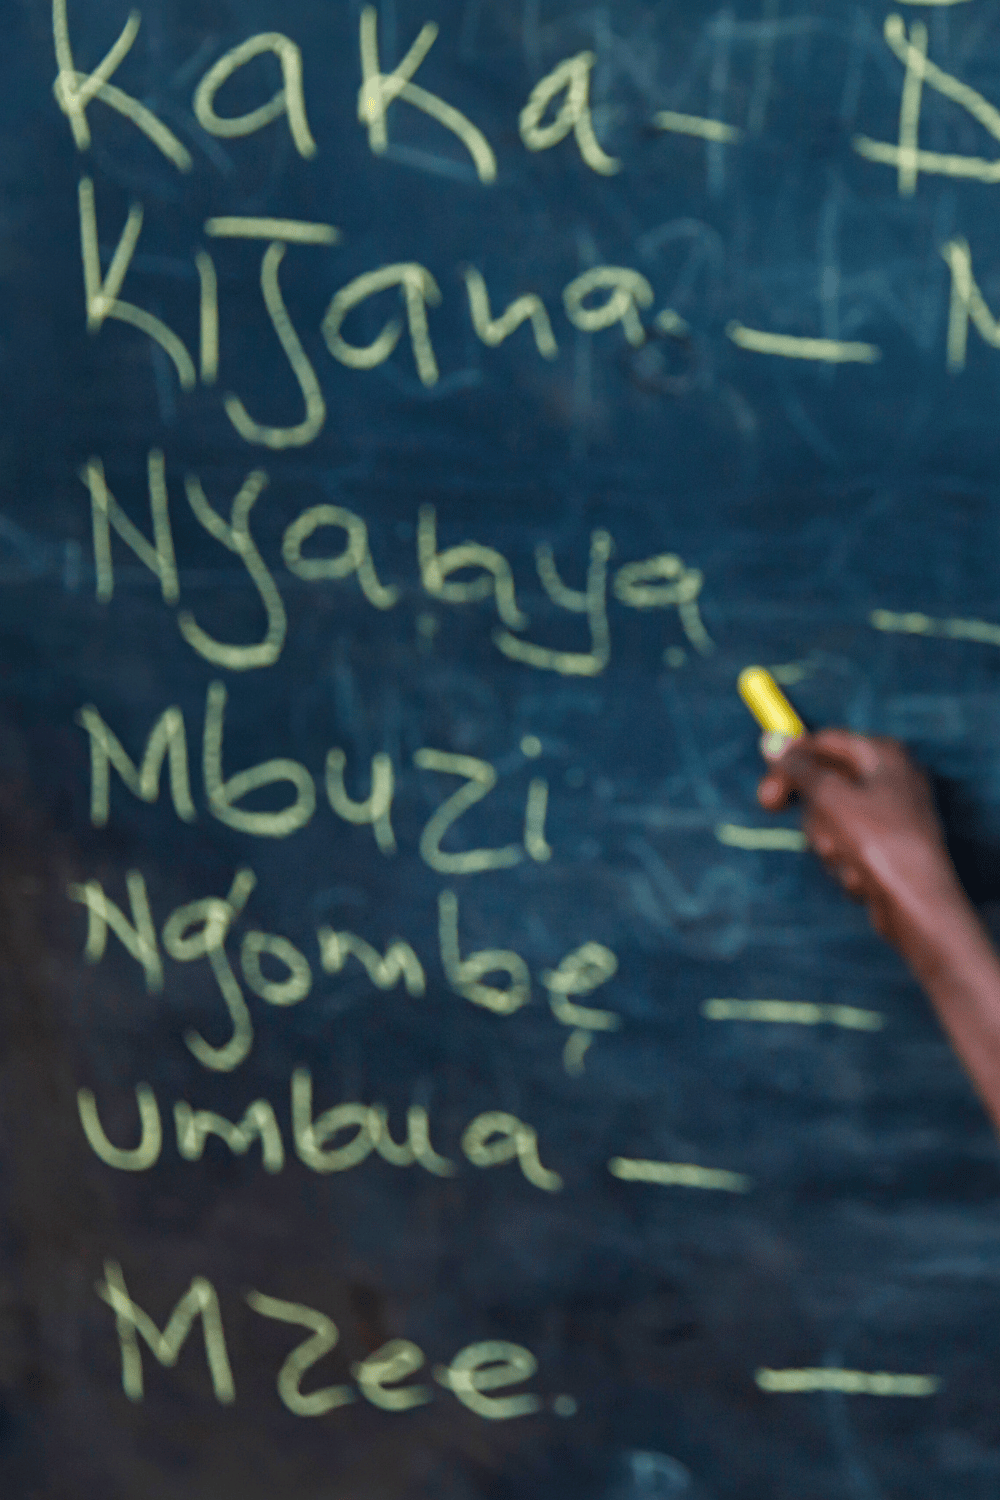 Kaka –
Kijana –
Nyabya –
Mbuzi –
Ngombe –
Umbua –
Mzee. –